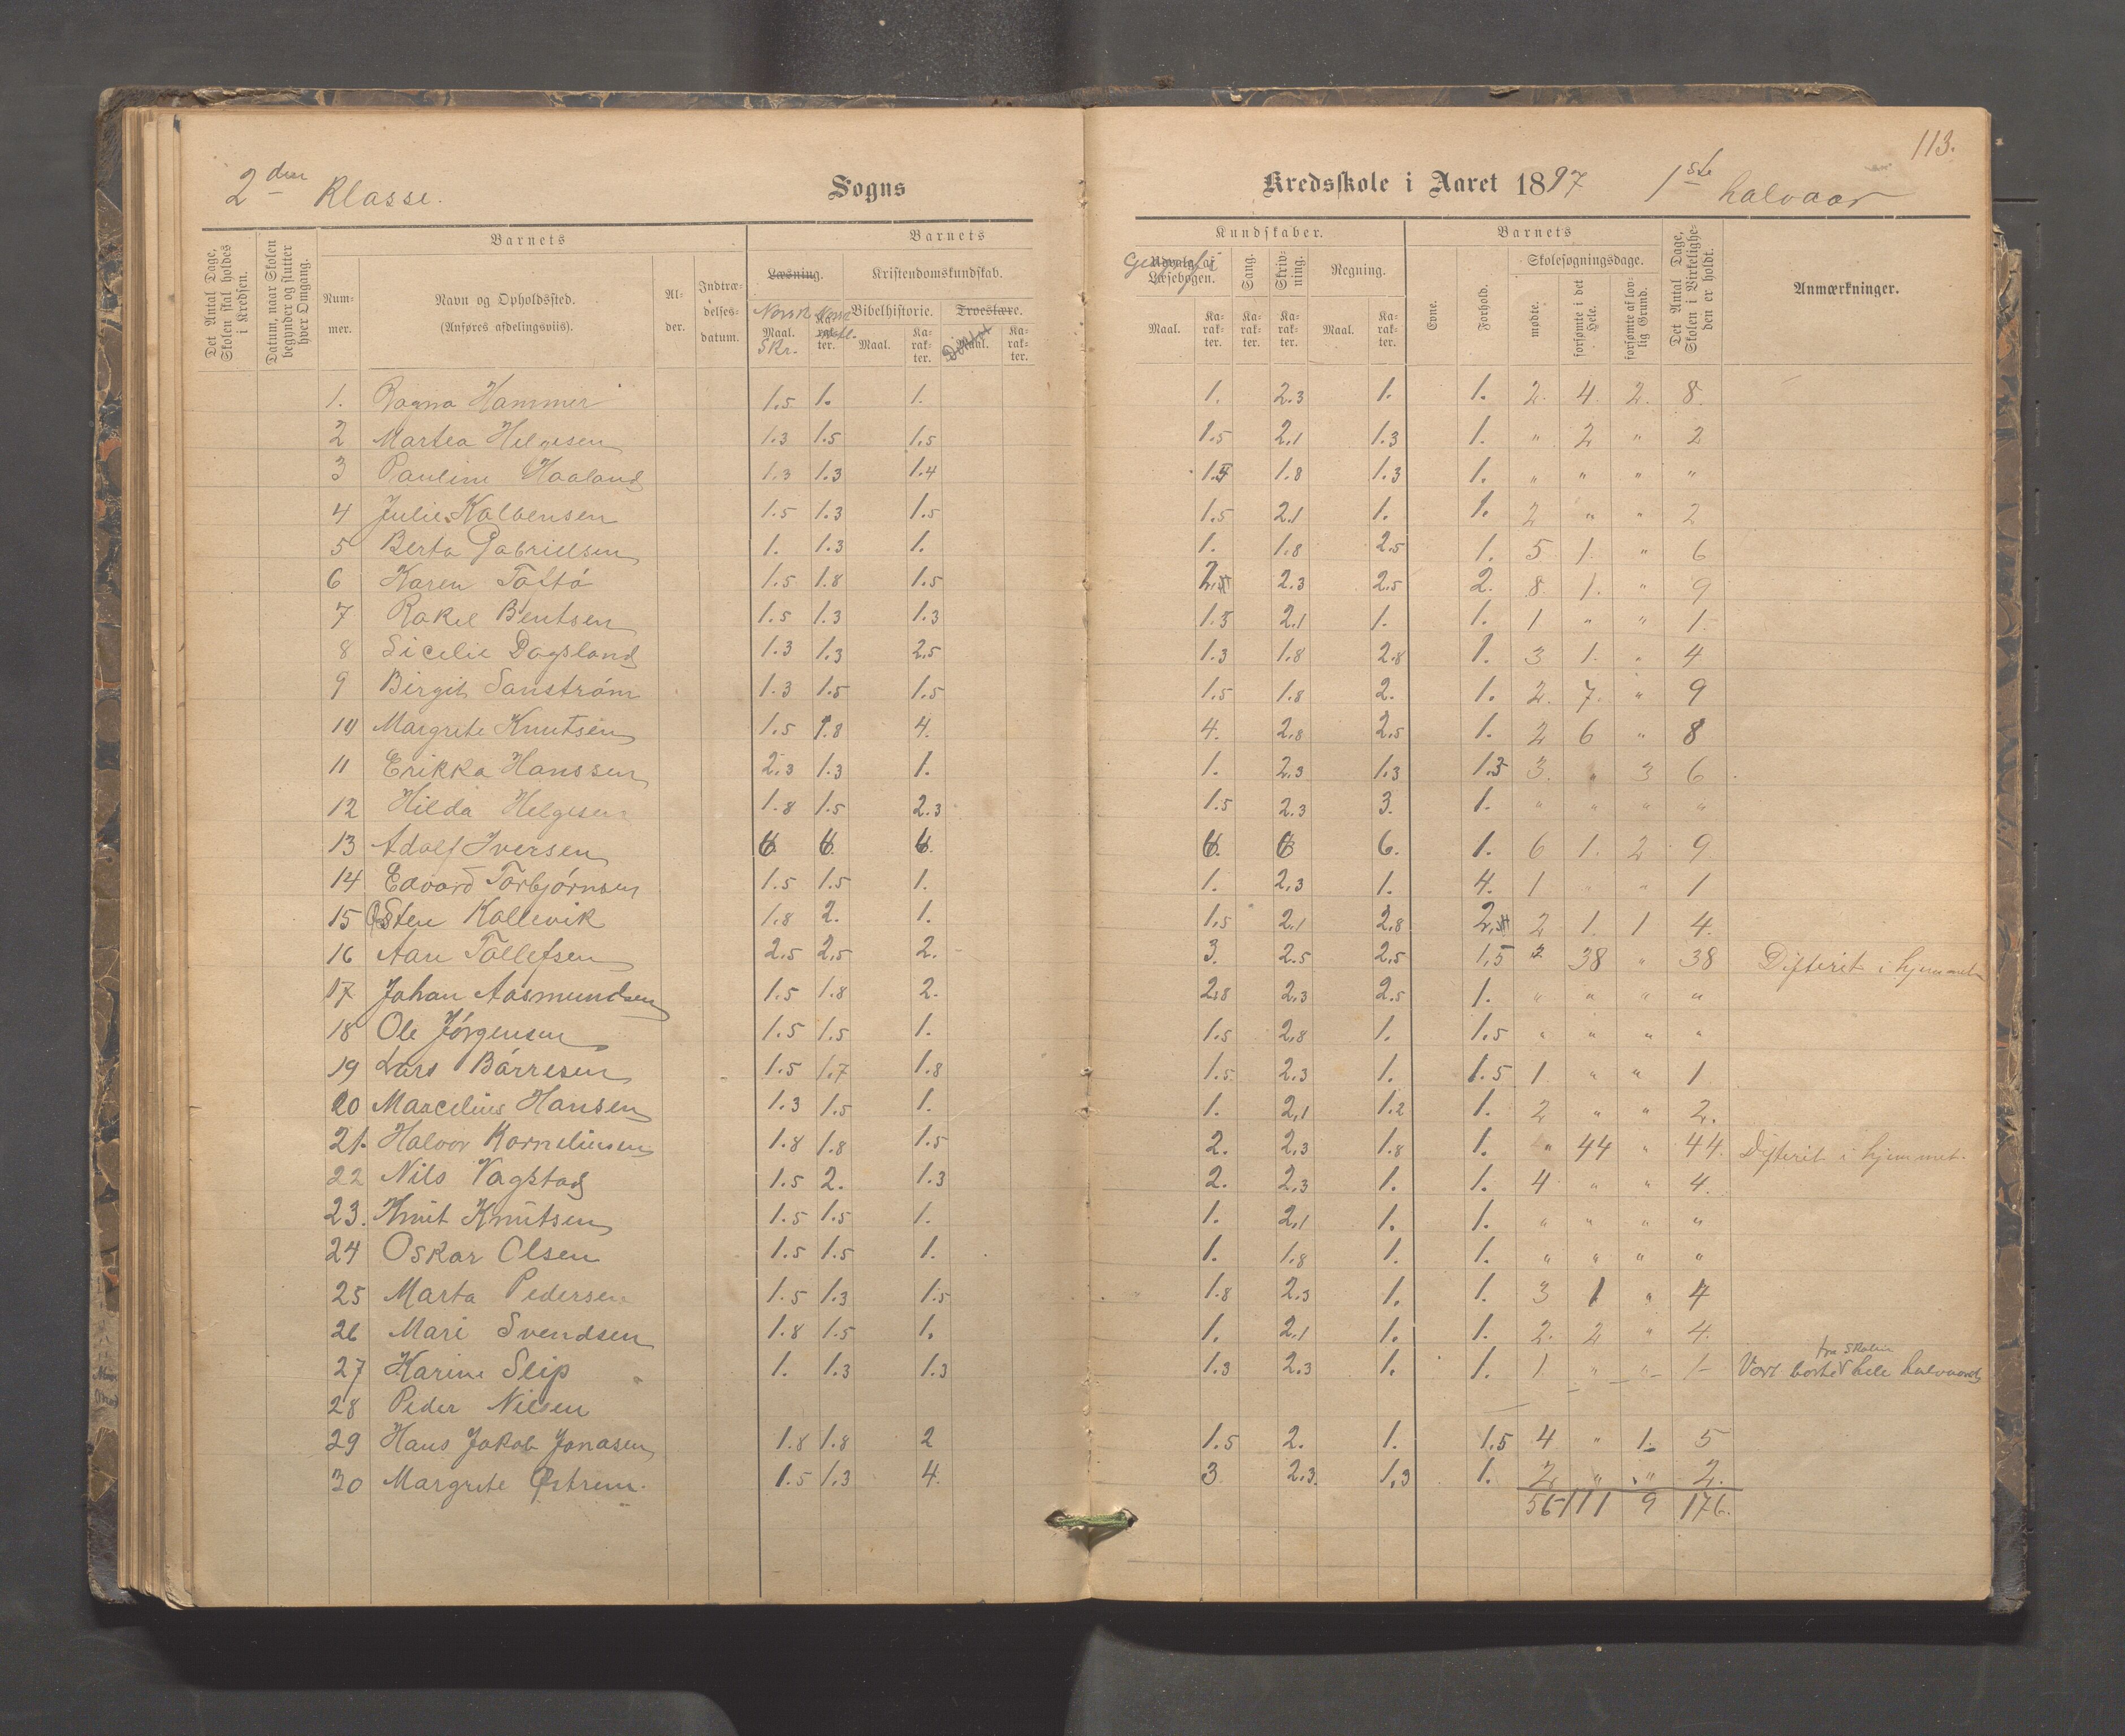 113.
2den Klasse. Sogns Kredsskole i Aaret 1897 1ste halvaar
Det Antal Dage, Skolen skal holdes i Kredsen.
Datum, naar Skolen begynder og slutter hver Omgang.
Barnets
Nummer.
Navn og Opholdssted.
(Anføres afdelingsviis).
Alder.
Indtrædelsesdatum.
Barnets
Læsning.
Norsk Skr.
Maal.
Karakter.
Kristendomskundskab.
Bibelhistorie.
Maal. Karakter.
Troeslære.
Maal. Karakter.
Kundskaber.
Udvalg af Læsebogen.
Maal. Karakter.
Sang.
Karakter.
Skrivning.
Karakter.
Regning.
Maal. Karakter.
Barnets
Evne.
Forhold.
Skolesøgningsdage.
mødte.
forsømte i det Hele.
forsømte af lovlig Grund.
Det Antal Dage, Skolen i Virkeligheden er holdt.
Anmærkninger.
1. Ragna Hammer 1.5 1. 1. 1. 2.3 1. 1. 2. 4. 2. 8.
2 Martea Helgesen 1.3 1.5 1.5 1.5 2.1 1.3 1. " 2 " 2
3 Pauline Haaland 1.3 1.3 1.4 1.4 1.8 1.3 1. " " " "
4 Julie Kalvensen 1.5 1.3 1.5 1.5 2.1 1. 1. 2 " " 2
5 Berta Gabrielsen 1. 1.3 1. 1. 1.8 2.5 1. 5 1. " 6
6 Karen Toftö 1.5 1.8 1.5 2.5 2.3 2.5 2. 8. 1. " 9
7 Rakel Bentsen 1.5 1.3 1.3 1.3 2.1 1. 1. 1 " " 1.
8 Sicelie Dagsland 1.3 1.3 2.5 1.3 1.8 2.8 1. 3 1. " 4
9 Birgit Sanström 1.3 1.5 1.5 1.5 1.8 2. 1. 2. 7. " 9
10 Margrete Knutsen 1.5 1.8 4. 4. 2.8 2.5 1. 2 6 " 8
11 Erikka Hanssen 2.3 1.3 1. 1. 2.3 1.3 1.3 3. " 3 6
12 Hilda Helgesen 1.8 1.5 2.3 1.5 2.3 3. 1. " " " "
13 Adolf Iversen 6. 6. 6. 6. 6 6. 1. 6 1. 2 9
14 Edvard Torbjörnsen 1.5 1.5 1. 1. 2.3 1. 4. 1 " " 1
15 Østen Kallevik 1.8 2. 1. 1.5 2.1 2.8 2.5 2 1. 1 4.
16 Aan Tollefsen 2.5 2.5 2. 3. 2.5 2.5 1.5 " 38 " 38 Difterit i hjemmet
17 Johan Aasmundsen 1.5 1.8 2. 2.8 2.3 2.5 1. " " " "
18 Ole Jörgensen 1.5 1.5 1. 1.5 2.8 1. 1.5 " " " "
19 Lars Börresen 1.5 1.7 1.8 1.5 2.3 1. 1.5 1 " " 1
20 Marcelius Hansen 1.3 1.5 1. 1. 2.1 1.2 1. 2 " " 2.
21. Halvor Korneliusen 1.8 1.8 1.5 2. 2.3 1.8 1. " 44 " 44. Difterit i hjemmet.
22 Nils Vagstad 1.5 2. 1.3 2. 2.3 1. 1. 4 " " 4
23. Knut Knutsen 1.5 1.5 1. 1. 2.1 1. 1. " " " "
24 Oskar Olsen 1.5 1.5 1. 1. 1.8 1. 1. " " " "
25 Marta Pedersen 1.5 1.3 1.5 1.8 2.3 1. 1. 3 1 " 4
26 Mari Svendsen 1.8 1.5 1. 1. 2.1 1. 1. 2. 2 " 4.
27 Karine Slip 1. 1.3 1.3 1.3 2.3 1. 1. 1 " " 1
fra skolen
Vært borte hele halvaaret
28 Peder Nilsen
29 Hans Jakob Jonasen 1.8 1.8 2 1.5 2. 1. 1.5 4 " 1. 5
30 Margrete Østrem. 1.5 1.3 4. 3 2.3. 1.3 1. 2 " " 2.
56 111 9 176.